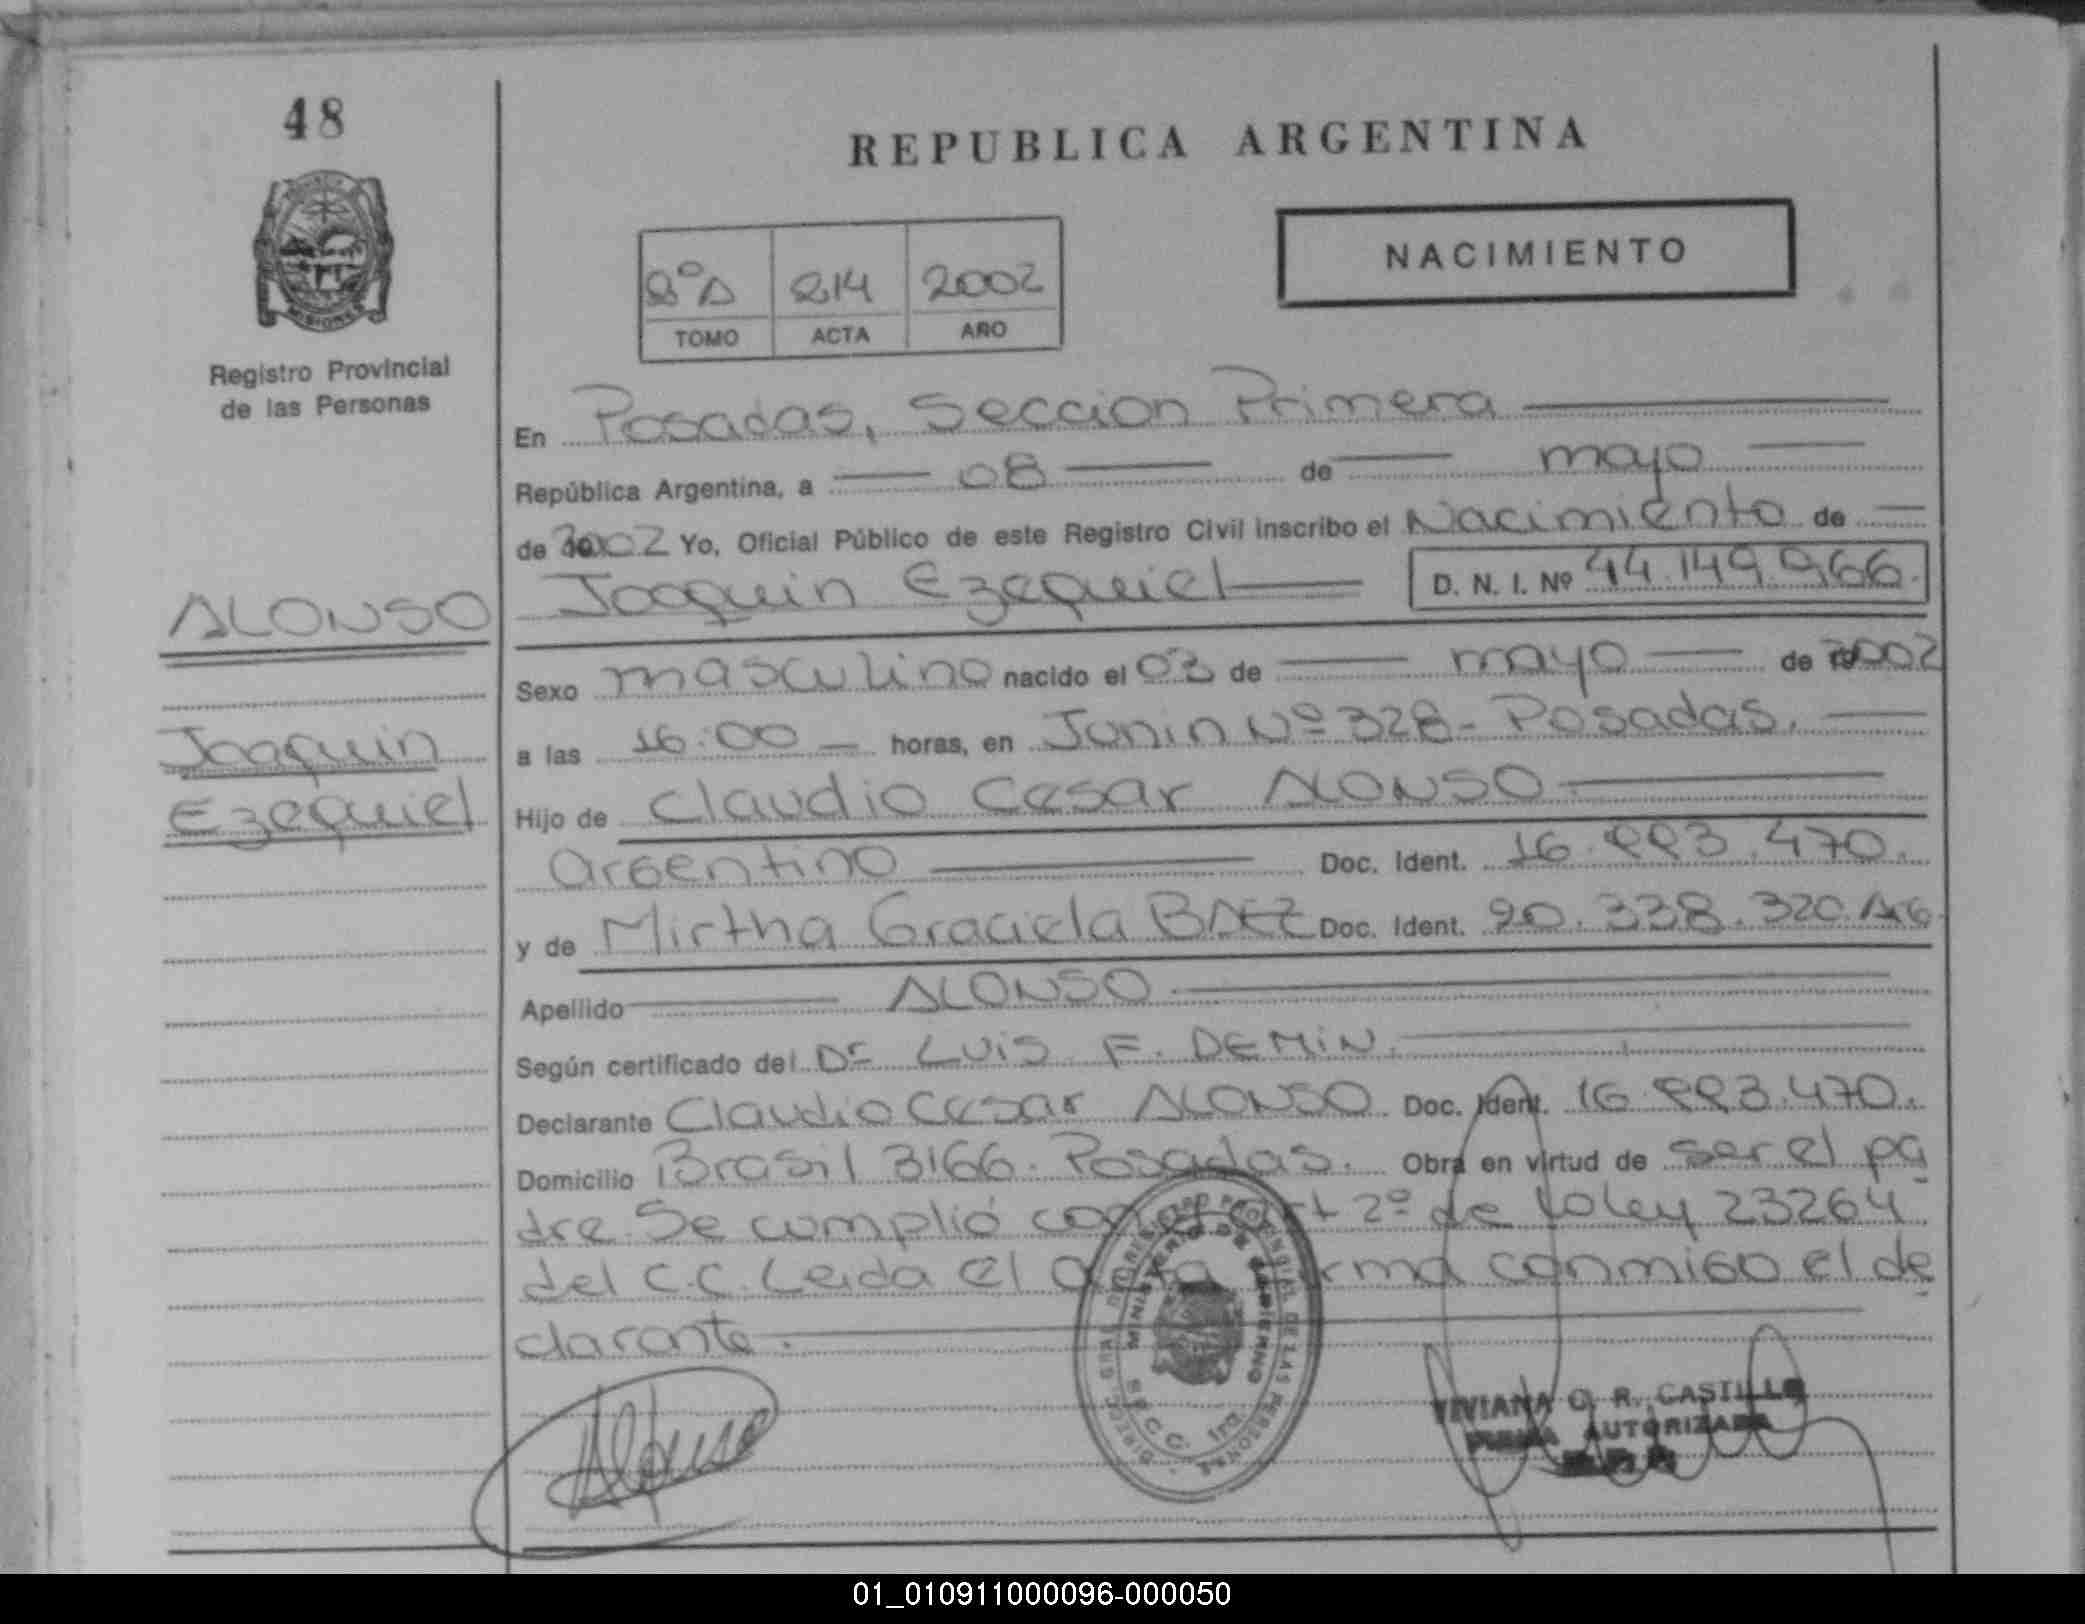 48
REPUBLICA ARGENTINA
NACIMIENTO
MISIONES
2ºA 214 2002
TOMO ACTA AÑO
Registro Provincial
de las Personas
En Posadas, Seccion Primera
República Argentina, a 08 de mayo
de 2002 Yo, Oficial Público de este Registro Civil inscribo el Nacimiento de
ALONSO
Joaquin Ezequiel D. N. I. Nº 44.149.966.
Sexo masculino nacido el 03 de mayo de 2002
Joaquin
a las 16:00 horas, en Junin Nº 328- Posadas.
Ezequiel
Hijo de Claudio Cesar ALONSO
argentino Doc. Ident. 16.223.470.
y de Mirtha Graciela BAEZ Doc. Ident. 20.338.320.
Apellido ALONSO
Según certificado del Dr LUIS F. DEMIN.
Declarante Claudio Cesar ALONSO Doc. Ident. 16.223.470.
Domicilio Brasil 3166. Posadas. Obra en virtud de ser el pa
dre. Se cumplió con el art 2º de la ley 23264
del C.C. Leida el acta firma conmigo el de
clarante.
DIREC. GRAL. DE REGISTRO PROVINCIAL DE LAS PERSONAS
MINISTERIO DE GOBIERNO
SECC. 1ra.
Alonso
VIVIANA C. R. CASTILLO
FIRMA AUTORIZADA
01_010911000096-000050